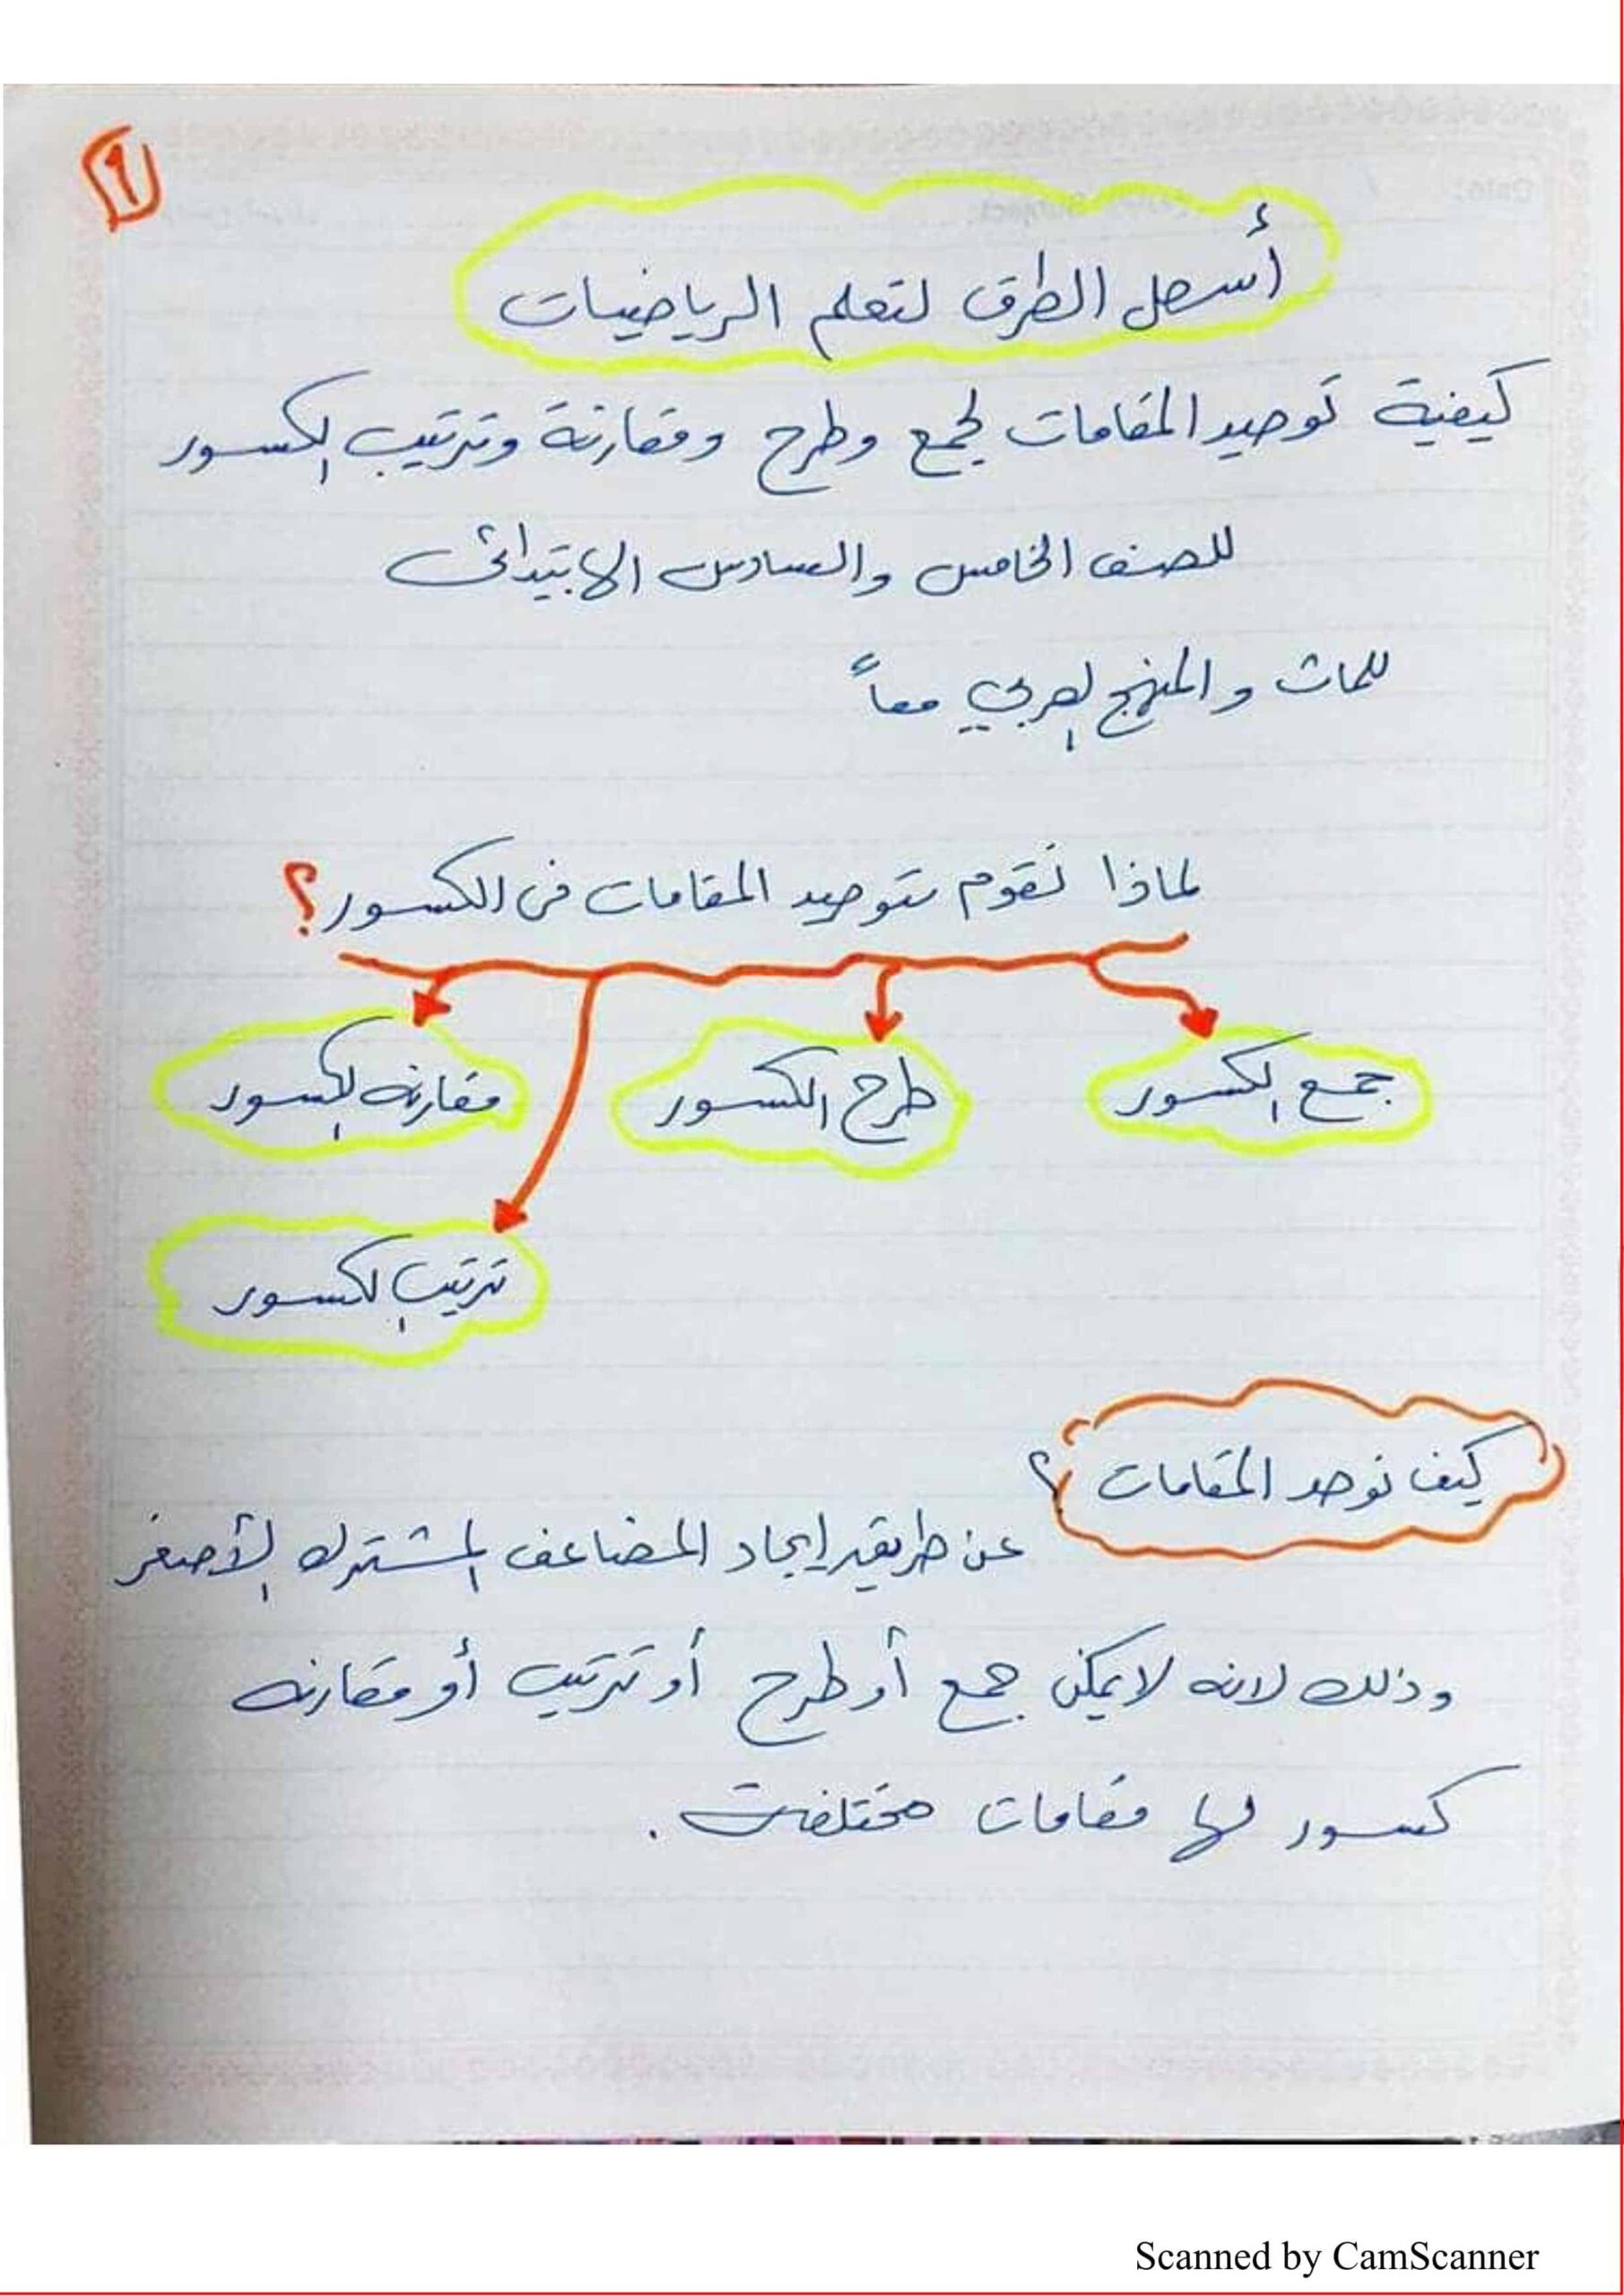 ١
أسهل الطرق لتعلم الرياضيات
كيفية توحيد المقامات لجمع وطرح ومقارنة وترتيب الكسور
للصف الخامس والسادس الابتدائى
للماث والمنهج العربي معاً
لماذا نقوم بتوحيد المقامات فى الكسور؟
جمع الكسور
طرح الكسور
مقارنه الكسور
ترتيب الكسور
كيف نوحد المقامات ؟
عن طريق إيجاد المضاعف المشترك الأصغر
وذلك لانه لا يمكن جمع أو طرح أو ترتيب أو مقارنه
كسور لها مقامات مختلفة .
Scanned by CamScanner